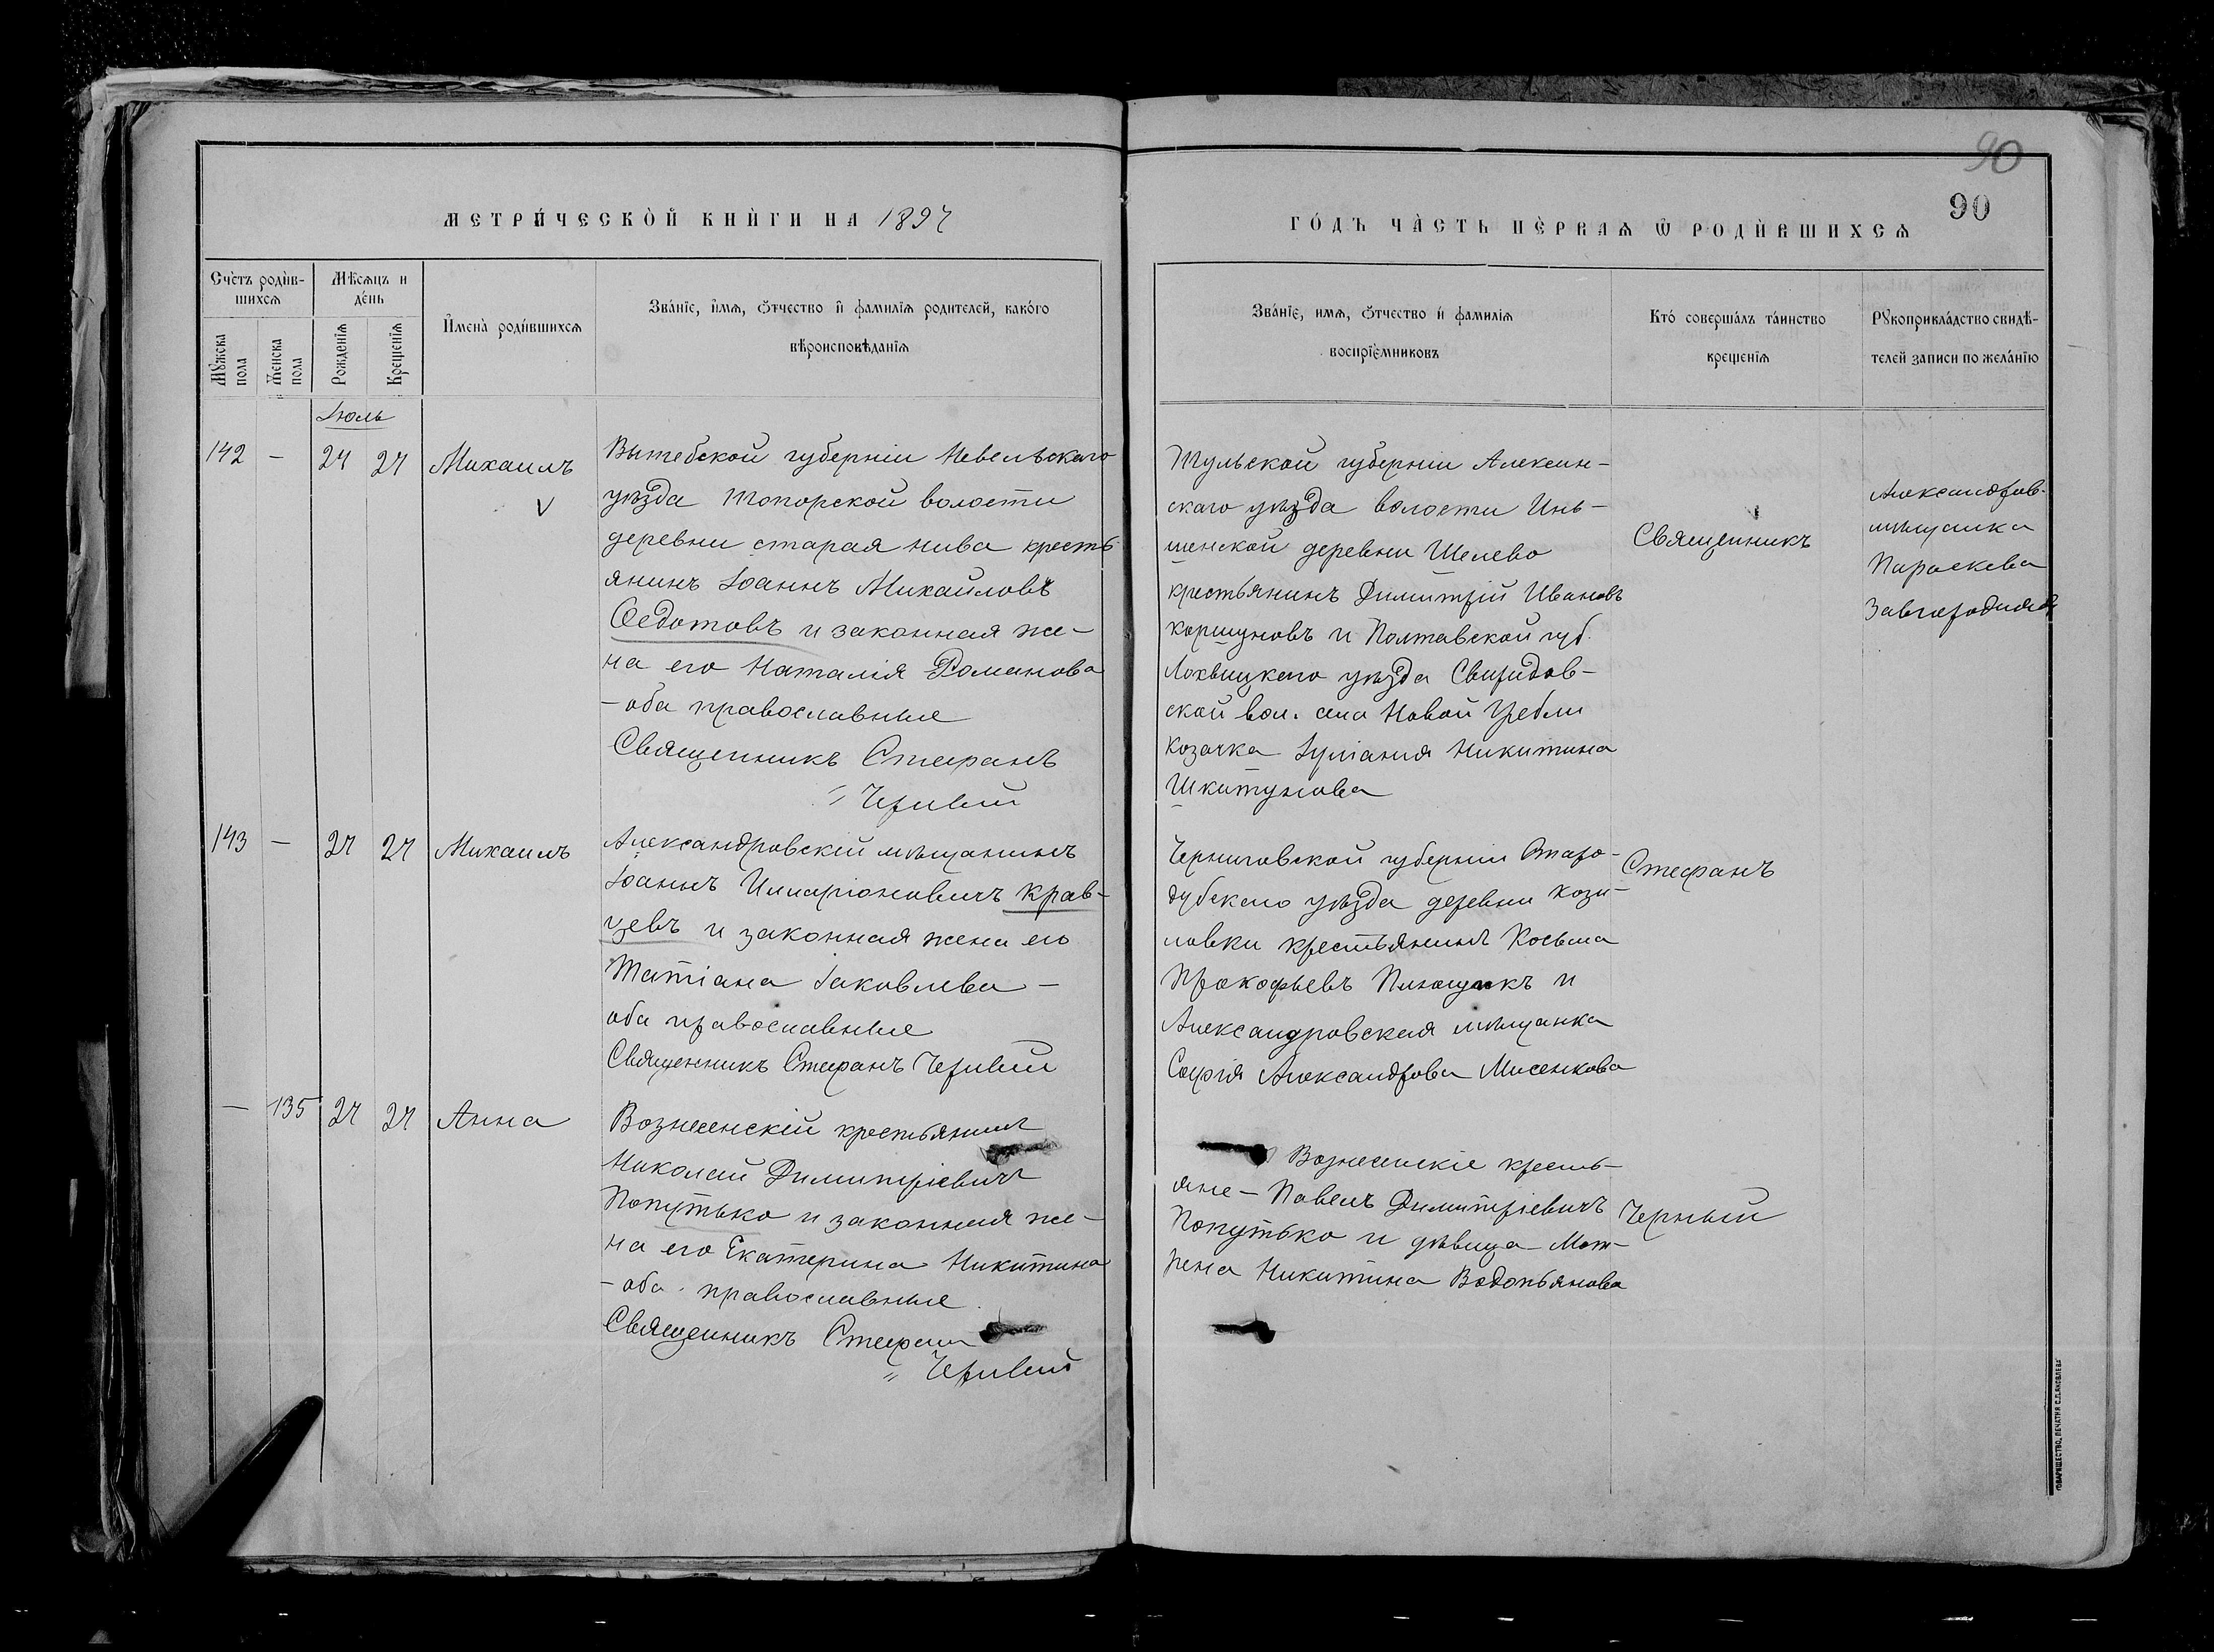 90
90
МЕТРИ́ЧЕСКОЙ КНИ́ГИ НА 1897
ГО́ДЪ ЧА́СТЬ ПЕ́РВАѦ Ѡ҆ РОДИ́ВШИХСѦ
Сче́тъ роди́в-
шихсѧ
Мꙋ́жска пола
Же́нска пола
Мѣ́сѧцъ и
де́нь
Рожде́нїѧ
Креще́нїѧ
И҆мена̀ роди́вшихсѧ
Зва́нїе, и҆́мѧ, ѻ҆́тчество и҆ фами́лїѧ родителей, како́го
вѣроисповѣ́данїѧ
Зва́нїе, имѧ, ѻ҆́тчество и҆ фами́лїѧ
воспрїе́мниковъ
Кто́ соверша́лъ та́инство
креще́нїѧ
Рꙋкоприкла́дство свидѣ́-
телей записи по жела́нїю
Іюль
142 — 24 27 Михаилъ
Вытебской губерніи Невельскаго
уѣзда Топорской волости
деревни старая нива кресть
янинъ Іоаннъ Михайловъ
Ѳедотовъ и законная же-
на его Наталія Романова
- оба православные
Священникъ Стефанъ
" Черный
Тульской губерніи Алексин-
скаго уѣзда волости Инь-
шенской деревни Шелево
крестьянинъ Димитрій Ивановъ
Коршуновъ и Полтавской губ.
Лохвицкаго уѣзда Свиридов-
ской вол. села Новой Гребли
козачка Іуліанія Никитина
Шкитунова
Священникъ
Александров.
мѣщанка
Параскева
Завгородняя
143 — 27 27 Михаилъ
Александровскій мѣщанинъ
Іоаннъ Илларіоновичъ Крав-
цевъ и законная жена его
Татіана Іаковлева -
оба православные
Священникъ Стефанъ Черный
Черниговской губерніи Старо-
дубскаго уѣзда деревни Кози-
ловки крестьянинъ Косьма
Прокофьевъ и
Александровская мѣщанка
Софія Александрова Мисенкова
Стефанъ
— 135 27 27 Анна
Вознесенскій крестьянинъ
Николай Димитріевичъ
Попутько и законная же-
на его Екатерина Никитина
- оба православные
Священникъ Стефан
" Черный
Вознесенскіе кресть-
яне - Павелъ Димитріевичъ
Попутько и дѣвица Мот-
рена Никитина Водопьянова
Черный
ТОВАРИЩЕСТВО „ПЕЧАТНЯ С.П.ЯКОВЛЕВА“